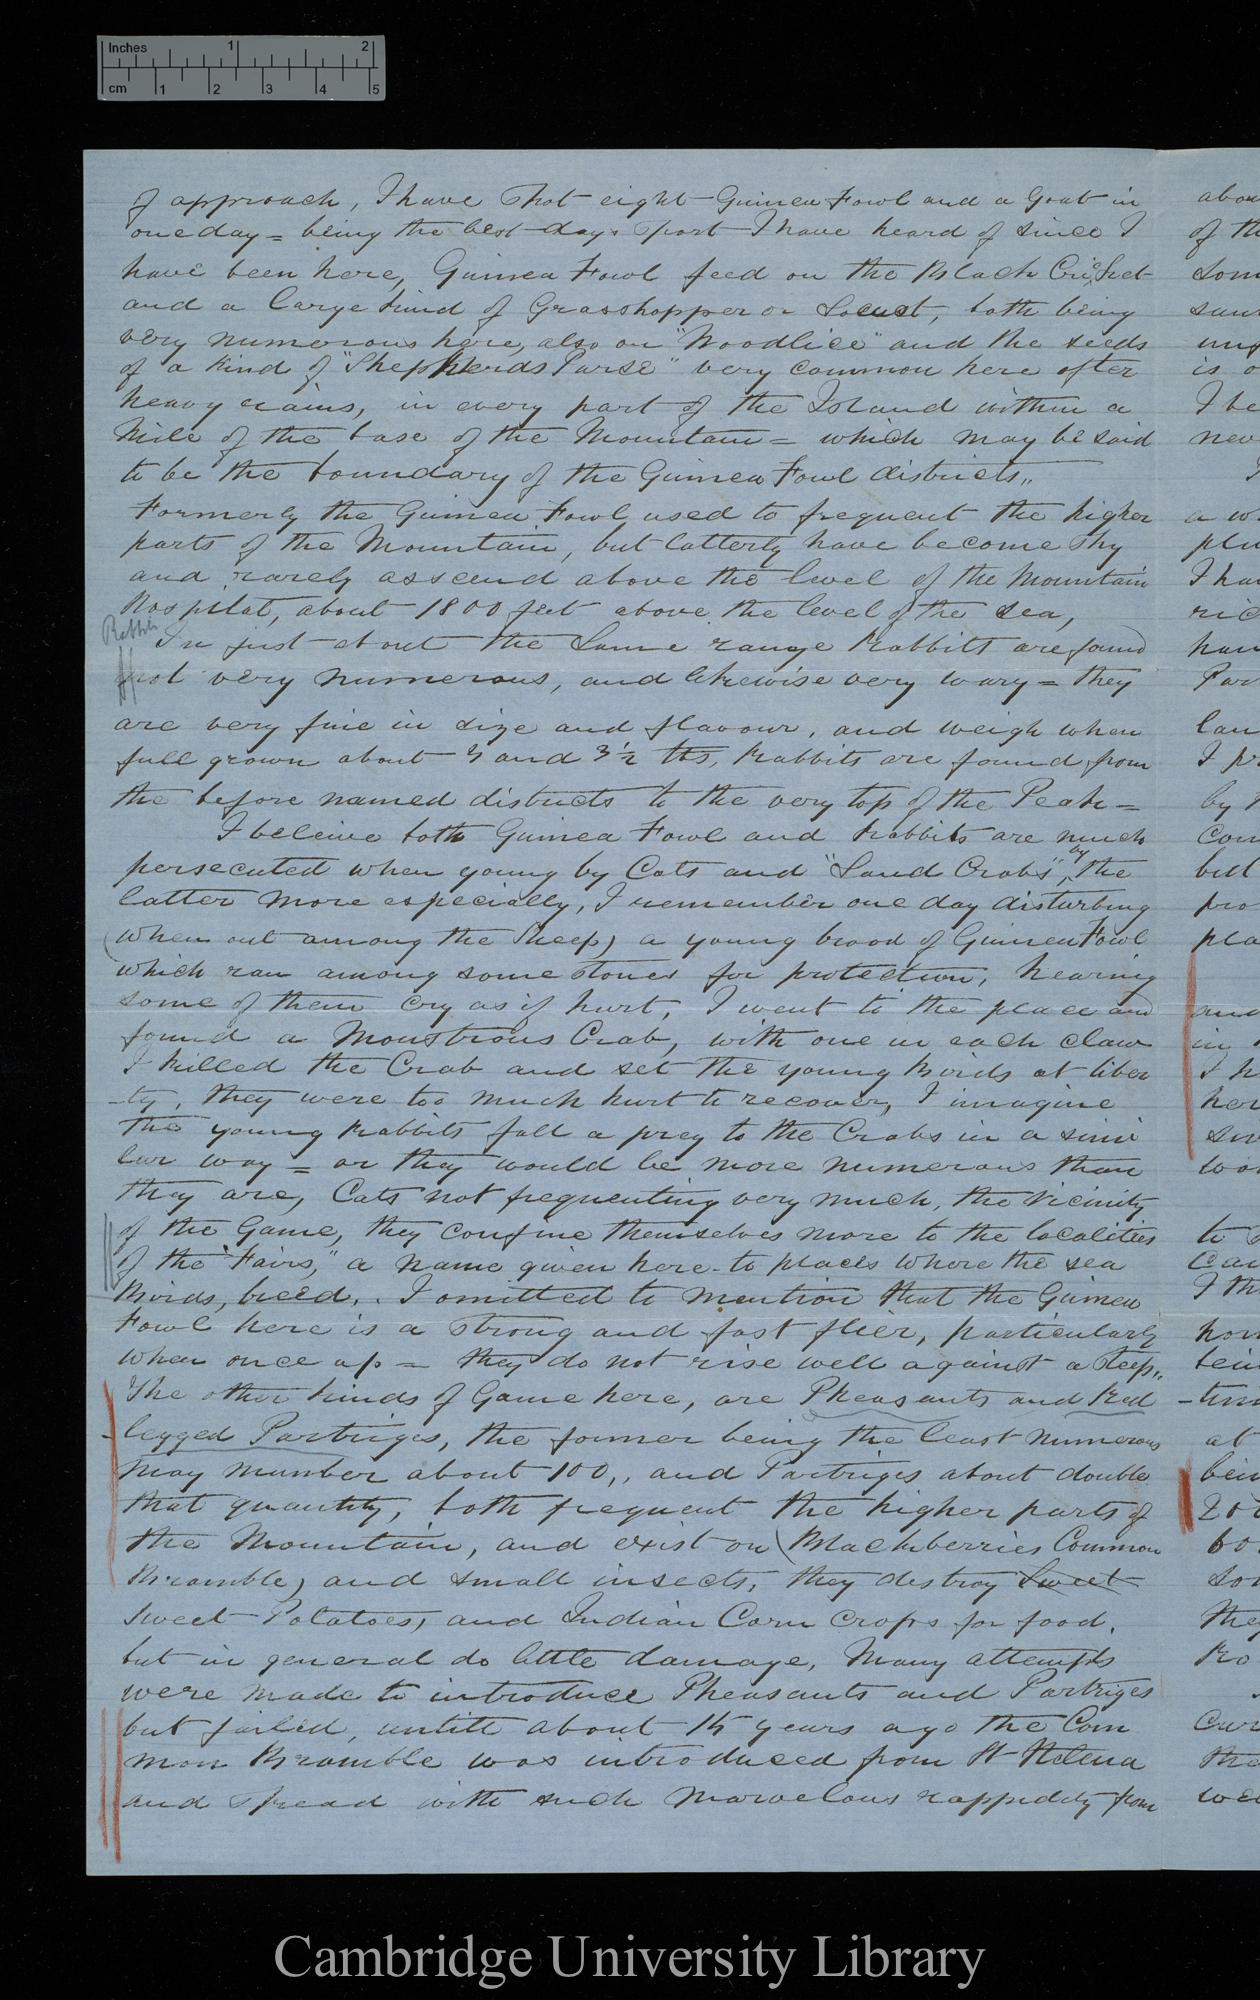 Inches 1 2
cm 1 2 3 4 5
of approach, I have shot eight Guinea Fowl and a Goat in
one day = being the best days sport I have heard of since I
have been here, Guinea Fowl feed on the Black Cricket
and a large kind of Grasshopper or Locust, both being
very numerous here, also on "Woodlice" and the seeds
of a kind of "Shepherds Purse" very common here after
heavy rains, in every part of the Island within a
Mile of the base of the Mountain = which may be said
to be the boundary of the Guinea Fowl districts,,
Formerly the Guinea Fowl used to frequent the higher
parts of the Mountain, but latterly have become shy
and rarely asscend above the level of the Mountain
Hospital, about 1800 feet above the level of the sea,
Rabbits
In just about the Same range Rabbits are found
not very numerous, and likewise very wary = they
are very fine in size and flavour, and weigh when
full grown about 3 and 3½ lbs, Rabbits are found from
the before named districts to the very top of the Peak =
I beleive both Guinea Fowl and Rabbits are much
persecuted when young by Cats and "Land Crabs", by the
latter more especially, I remember one day disturbing
(when out among the Sheep) a young brood of Guinea Fowl
which ran among some stones for protection, hearing
some of them cry as if hurt, I went to the place and
found a Monstrous Crab, with one in each claw
I killed the Crab and set the young Birds at liber
-ty, they were too much hurt to recover, I imagine
the young Rabbits fall a prey to the Crabs in a simi
lar way = or they would be more numerous than
they are, Cats not frequenting very much, the vicinity
of the Game, they confine themselves more to the localities
of the "Fairs," a name given here to places where the sea
Birds, breed,. I omitted to mention that the Guinea
Fowl here is a strong and fast flier, particularly
when once up = they do not rise well against a steep,,
The other kinds of Game here, are Pheasants and Red
-legged Partriges, the former being the least numerous
may number about 100,, and Partriges about double
that quantity, both frequent the higher parts of
the Mountain, and exist on (Blackberries Common
Bramble) and small insects, they destroy Sweet
Sweet Potatoes, and Indian Corn crops for food,
but in general do little damage, Many attempts
were made to introduce Pheasants and Partriges
but failed, untill about 15 years ago the Com
mon Bramble was introduced from St Helena
and spread with such marvelous rappidity from
Cambridge University Library